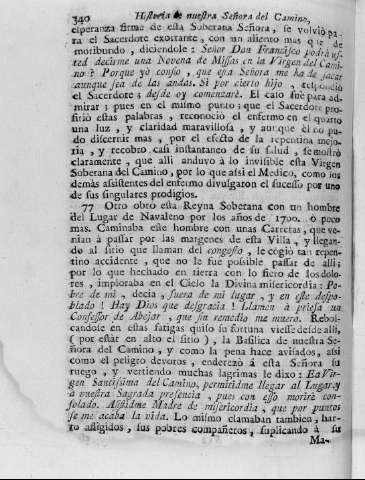 340 Historia de nuestra Señora del Camino,
esperanza firme de esta Soberana Señora, se volvió pa-
ra el Sacerdote exortante, con un aliento mas que de
moribundo, diciendole: Señor Don Francisco podrà us-
ted decirme una Novena de Missas en la Virgen del Cami-
no? Porque yo confio, que esta Señora me ha de sacar
aunque sea de las andas. Sì por cierto hijo, respondiò
el Sacerdote; desde oy comenzarè. El caso fue para ad-
mirar; pues en el mismo punto; que el Sacerdote pro-
firiò estas palabras, reconociò el enfermo en el quarto
una luz, y claridad maravillosa, y aunque èl no pu-
do discernir mas, por el efecto de la repentina mejo-
ria, y recobro casi instantaneo de su salud, se mostrò
claramente, que alli anduvo à lo invisible esta Virgen
Soberana del Camino, por lo que assi el Medico, como los
demàs asistentes del enfermo divulgaron el sucesso por uno
de sus singulares prodigios.
77 Otro obrò esta Reyna Soberana con un hombre
del Lugar de Navaleno por los años de 1700. ò poco
mas. Caminaba este hombre con unas Carretas, que ve-
nian à passar por las margenes de esta Villa, y llegan-
do al sitio que llaman del congosto, le cogiò tan repen-
tino accidente, que no le fue possible passar de alli;
por lo que hechado en tierra con lo fiero de los dolo-
res, imploraba en el Cielo la Divina misericordia: Po-
bre de mi, decia, fuera de mi lugar, y en este despo-
blado! Hay Dios que desgracia! Llamen à priessa un
Confessor de Abejar, que sin remedio me muero. Rebol-
candose en estas fatigas quiso su fortuna viesse desde alli,
( por estàr en alto el sitio ), la Basilica de nuestra Se-
ñora del Camino, y como la pena hace avisados, assi
como el peligro devotos, enderezò à esta Señora su
ruego, y vertiendo muchas lagrimas le dixo: Ea Vir-
gen Santissima del Camino, permitidme llegar al Lugar, y
à vuestra Sagrada presencia, pues con esso morirè con-
solado. Assistidme Madre de misericordia, que por puntos
se me acaba la vida. Lo mismo clamaban tambien, har-
to afligidos, sus pobres compañeros, suplicando à su
Ma-